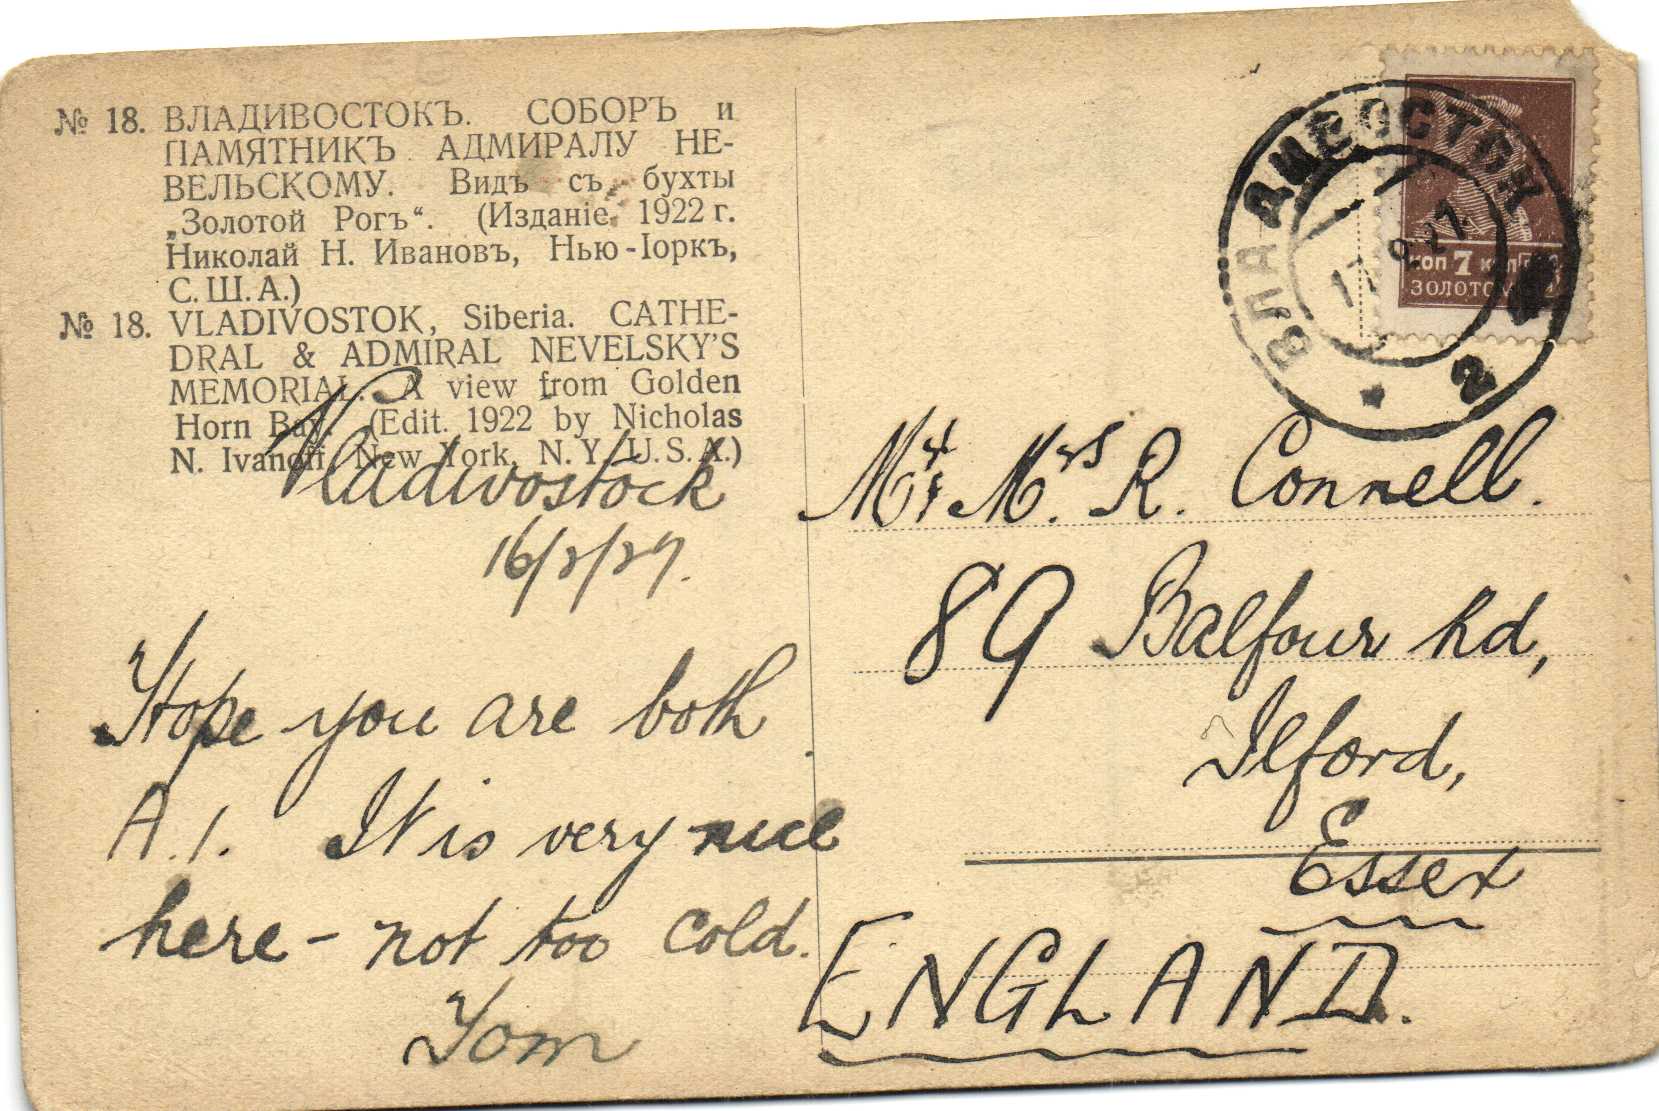 № 18. ВЛАДИВОСТОКЪ. СОБОРЪ и
ПАМЯТНИКЪ АДМИРАЛУ НЕ-
ВЕЛЬСКОМУ. Видъ съ бухты
„Золотой Рогъ“. (Изданіе 1922 г.
Николай Н. Ивановъ, Нью-Іоркъ,
С.Ш.А.)
№ 18. VLADIVOSTOK, Siberia. CATHE-
DRAL & ADMIRAL NEVELSKY'S
MEMORIAL. A view from Golden
Horn Bay. (Edit. 1922 by Nicholas
N. Ivanoff, New York, N.Y. U.S.A.)
Vladivostock
16/2/27.
Hope you are both
A.1. It is very nice
here - not too cold.
Tom
ВЛАДИВОСТОК
17 2 27
2
коп 7 коп
ЗОЛОТОМ
Mr & Mrs R. Connell.
89 Balfour Rd,
Ilford,
Essex
ENGLAND.